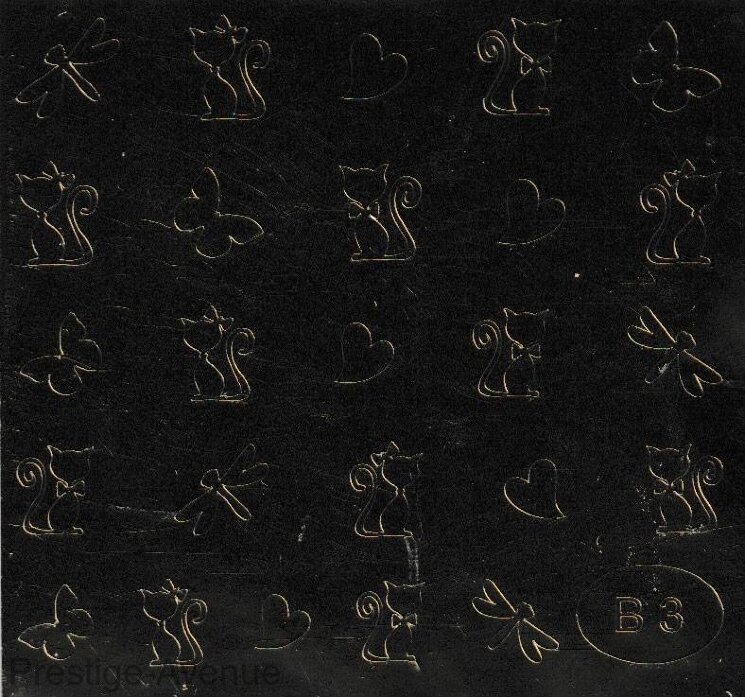 B 3
Prestige-Avenue